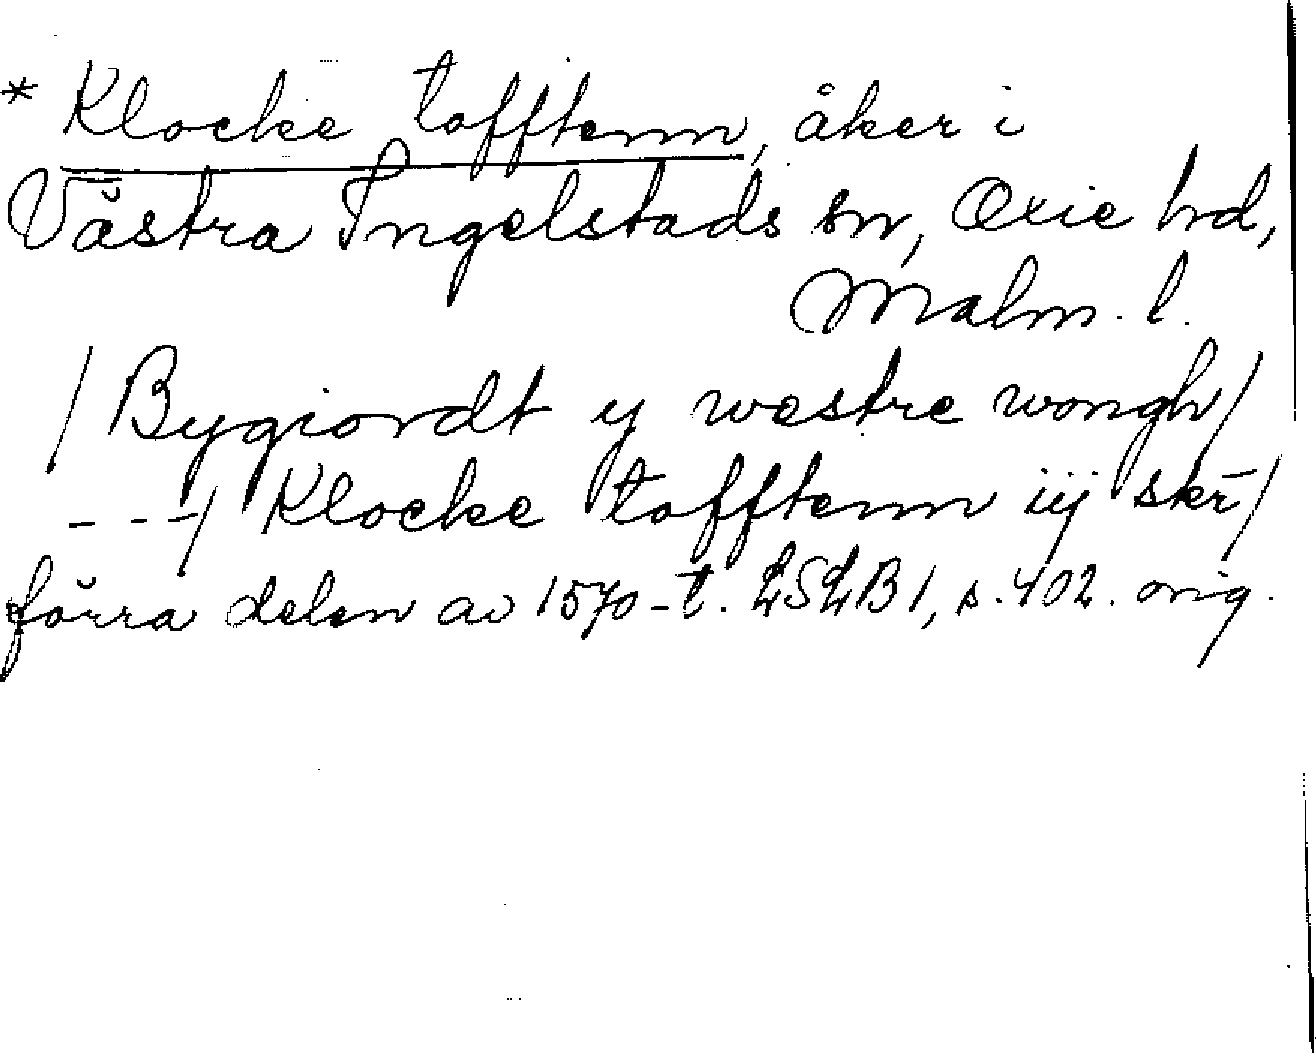 * Klocke tofftenn, åker i
Västra Ingelstads sn, Oxie hd,
Malm. l.
/ Bygiordt y westre wongh /
- - - / Klocke tofftenn iij skr̄ /
förra delen av 1570-t. LSLB 1, s. 402. orig.